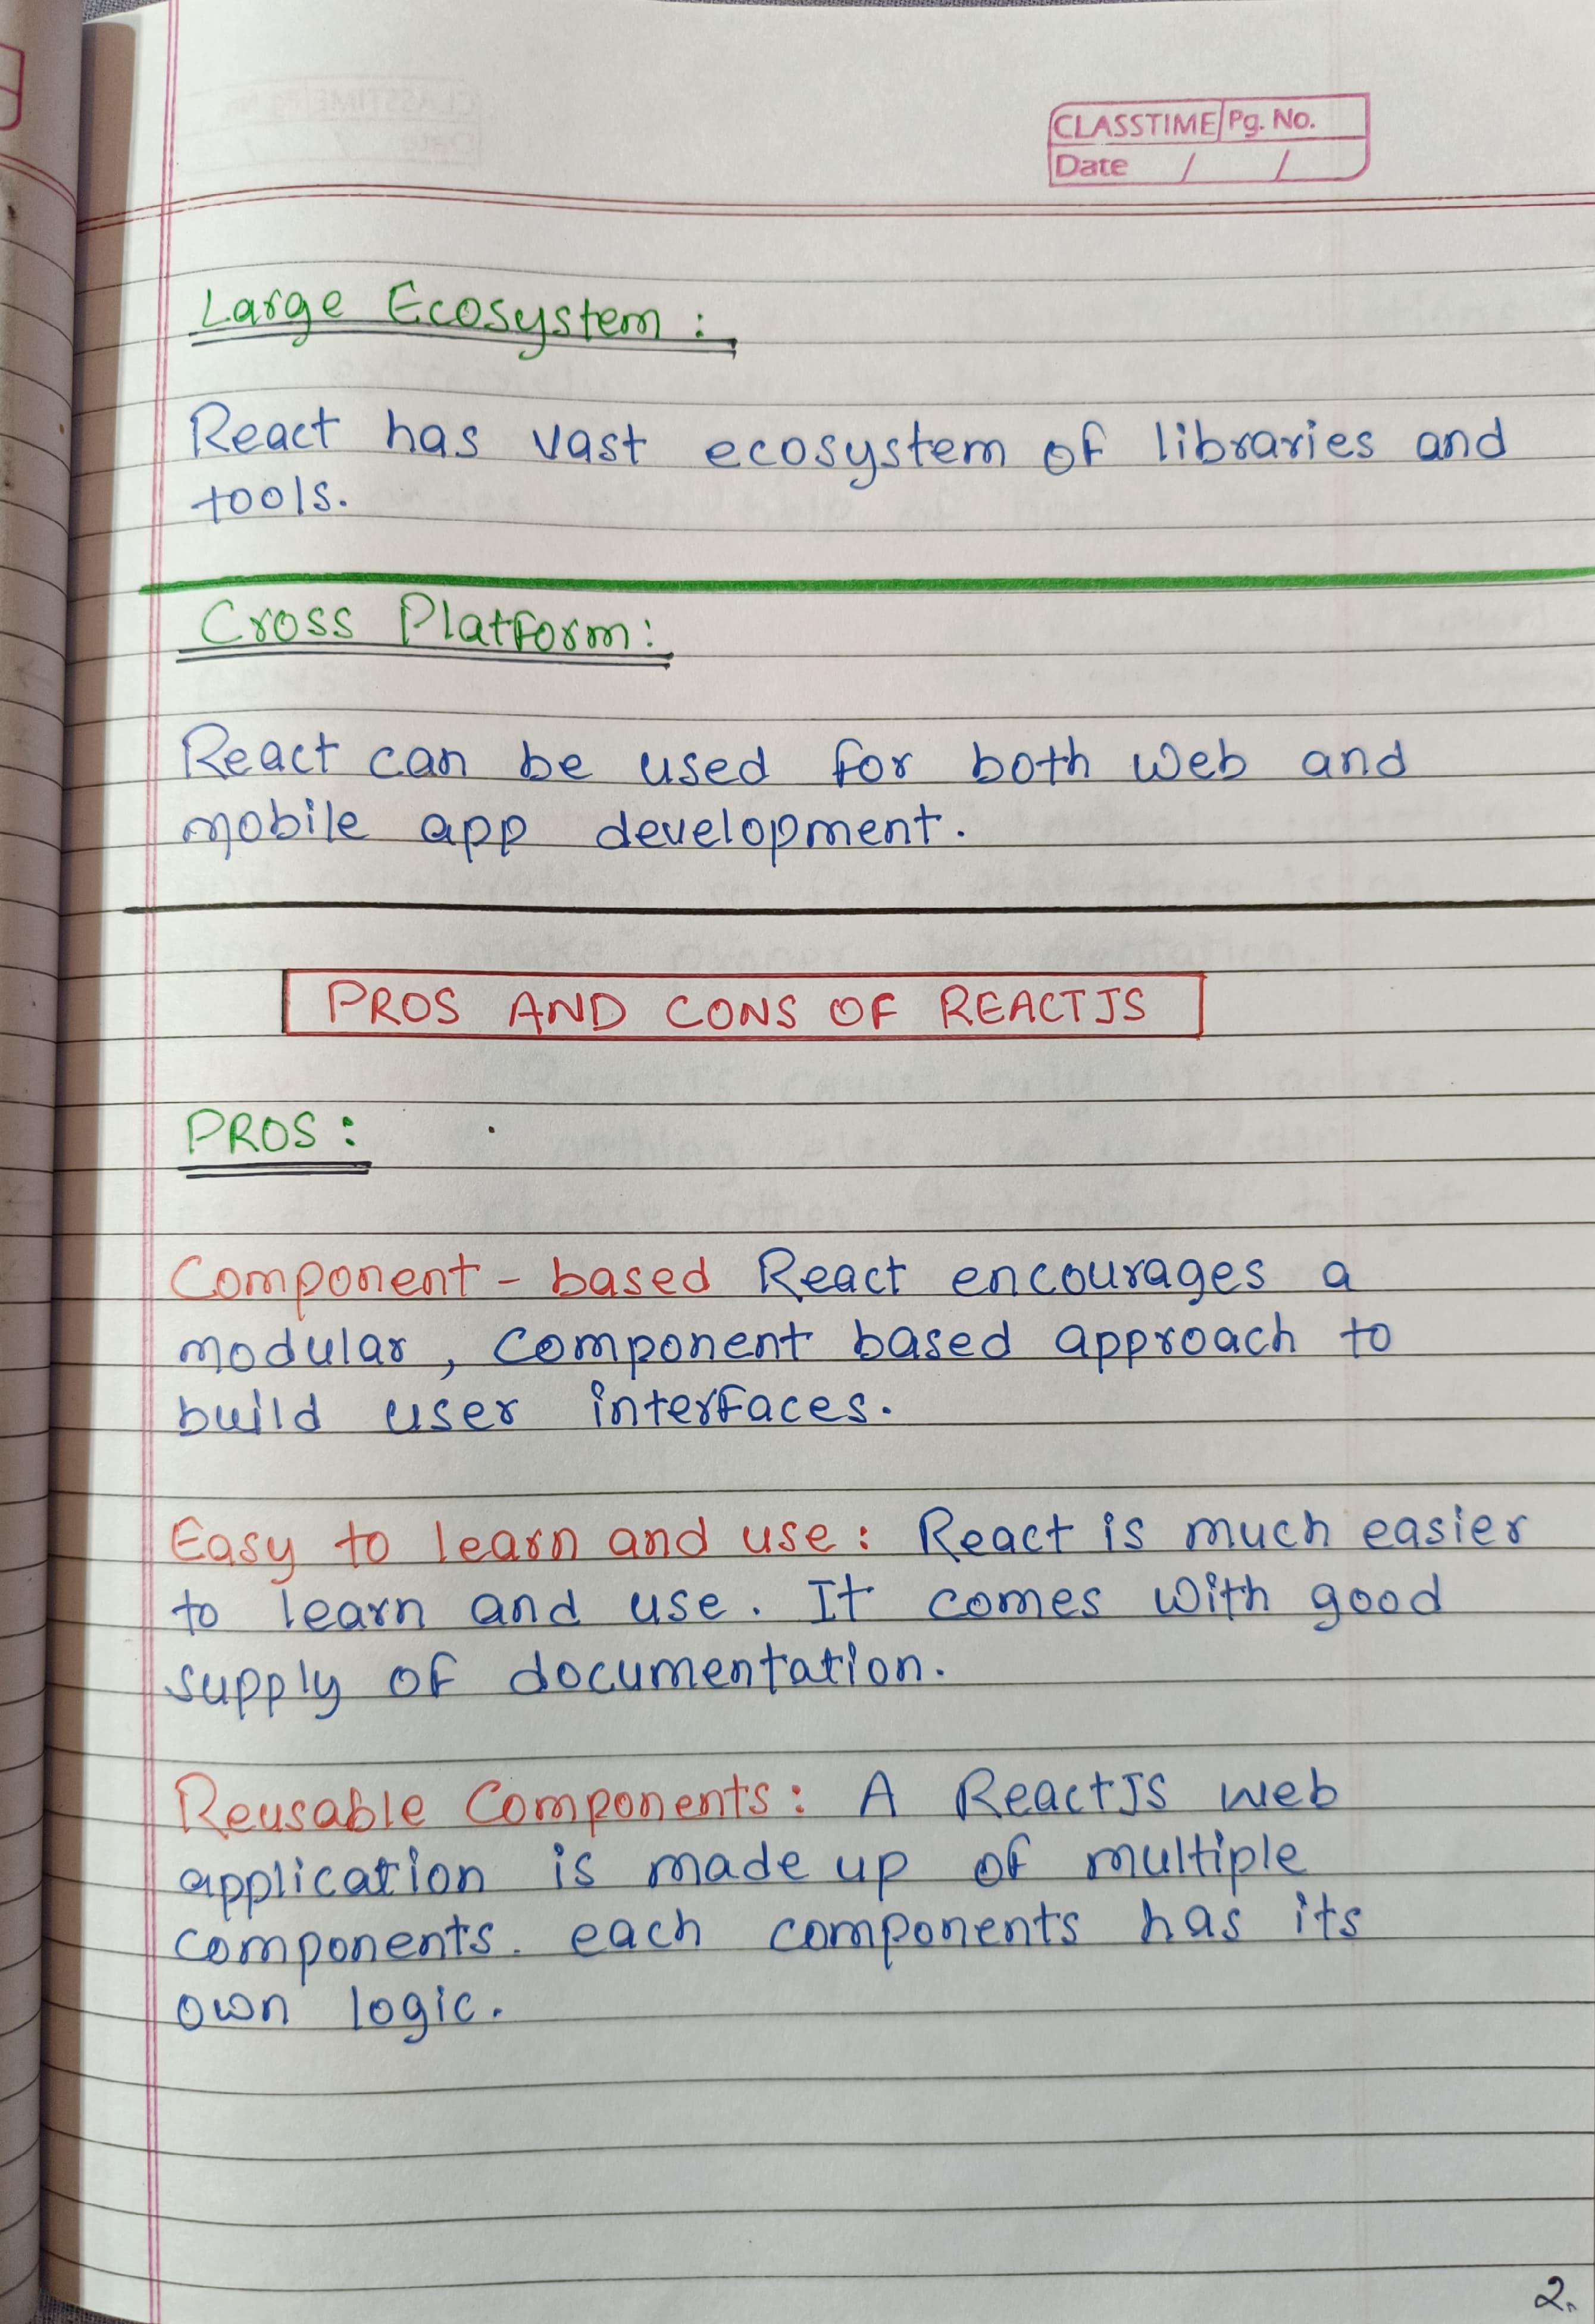 CLASSTIME Pg. No.
Date / /
Large Ecosystem :
React has vast ecosystem of libraries and
tools.
Cross Platform:
React can be used for both web and
mobile app development.
PROS AND CONS OF REACTJS
PROS :
Component - based React encourages a
modular, component based approach to
build user interfaces.
Easy to learn and use : React is much easier
to learn and use. It comes with good
supply of documentation.
Reusable Components : A ReactJS web
application is made up of multiple
components. each components has its
own logic.
2.